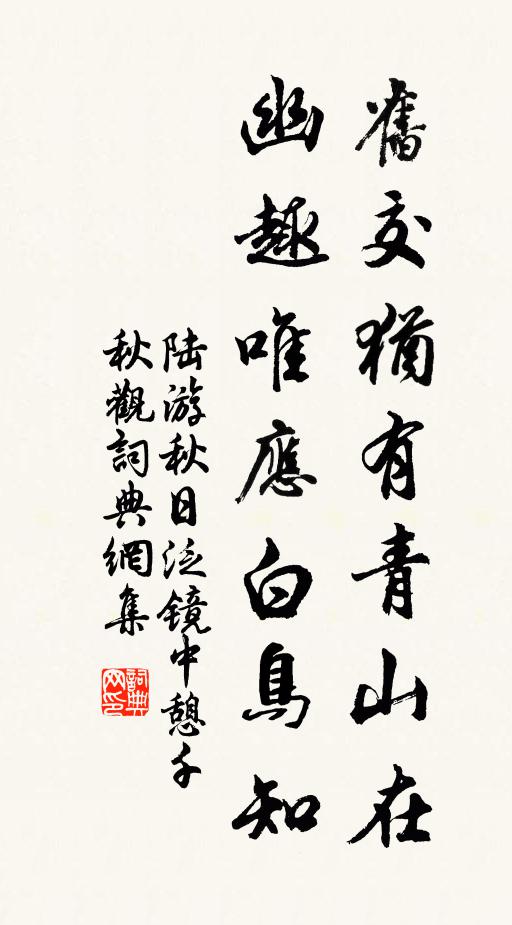 舊交猶有青山在
幽趣唯應白鳥知
陆游秋日泛镜中憩千
秋觀詞典網集
詞典
网印